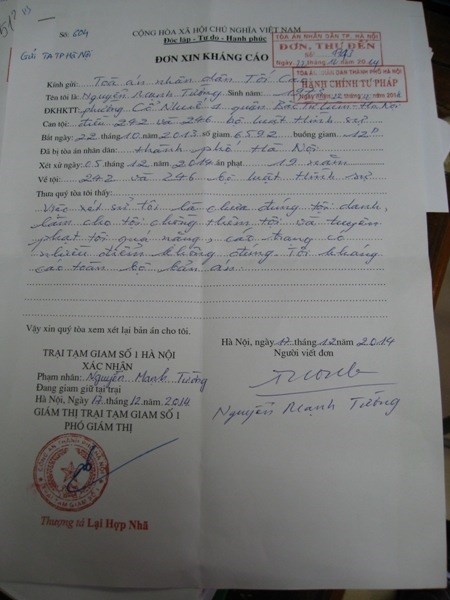 CỘNG HÒA XÃ HỘI CHỦ NGHĨA VIỆT NAM
Độc lập - Tự do - Hạnh phúc
Số: 604
Gửi TATP Hà Nội
TÒA ÁN NHÂN DÂN TP. HÀ NỘI
ĐƠN, THƯ ĐẾN
ĐƠN XIN KHÁNG CÁO
HÀNH CHÍNH TƯ PHÁP
Kính gửi: Toà án nhân dân Tối Cao
Tên tôi là: Nguyễn Mạnh Tường Sinh năm:
ĐKHKTT: phường Cổ Nhuế 1 quận Bắc Từ Liêm - Hà Nội
Can tội: điều 242 và 246 bộ luật hình sự
Bắt ngày: 22 tháng 10 năm 2013 số giam 6592 buồng giam 12
Đã bị tòa án nhân dân: thành phố Hà Nội
Xét xử ngày 05 tháng 12 năm 2014 án phạt 19 năm
Về tội: 242 và 246 bộ luật hình sự
Thưa quý tòa tôi thấy:
Việc xét xử tôi là chưa đúng tội danh,
làm cho tôi chồng thêm tội và tuyên
phạt tôi quá nặng, cáo trạng có
nhiều điểm không đúng. Tôi kháng
cáo toàn bộ bản án.
Vậy xin quý tòa xem xét lại bản án cho tôi.
Hà Nội, ngày 17 tháng 12 năm 2014
Người viết đơn
Nguyễn Mạnh Tường
TRẠI TẠM GIAM SỐ 1 HÀ NỘI
XÁC NHẬN
Phạm nhân: Nguyễn Mạnh Tường
Đang giam giữ tại trại
Hà Nội, Ngày 17 tháng 12 năm 2014
GIÁM THỊ TRẠI TẠM GIAM SỐ 1
PHÓ GIÁM THỊ
CÔNG AN THÀNH PHỐ HÀ NỘI
TRẠI TẠM GIAM SỐ 1
Thượng tá Lại Hợp Nhã